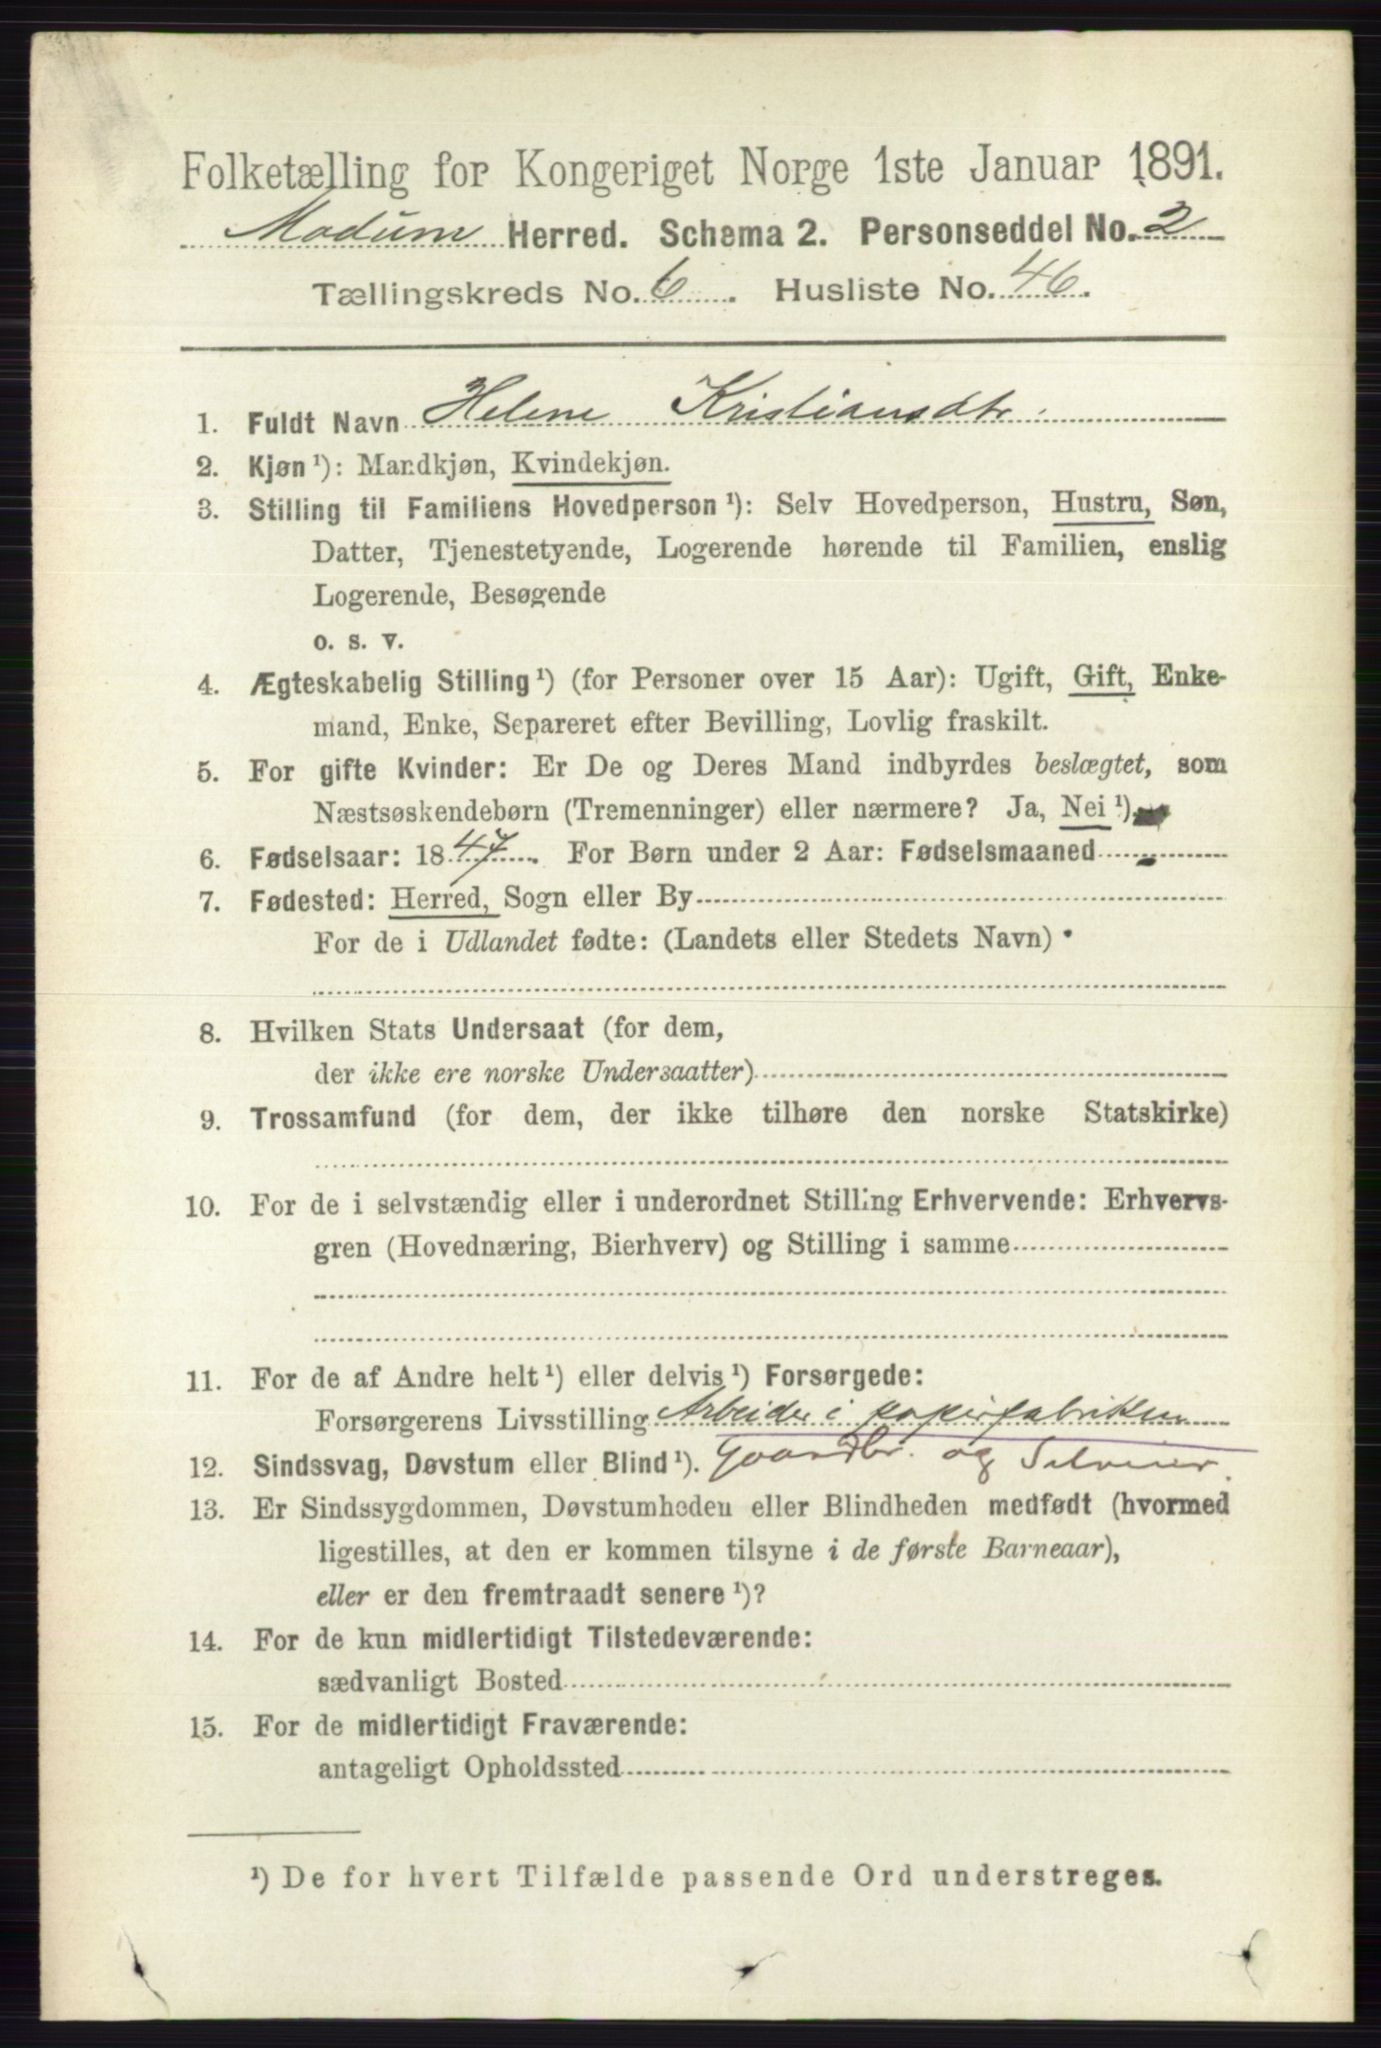 Folketælling for Kongeriget Norge 1ste Januar 1891.
Modum Herred. Schema 2. Personseddel No. 2
Tællingskreds No. 6. Husliste No. 46.
1. Fuldt Navn Helene Kristiansdtr.
2. Kjøn ¹): Mandkjøn, Kvindekjøn.
3. Stilling til Familiens Hovedperson ¹): Selv Hovedperson, Hustru, Søn,
Datter, Tjenestetyende, Logerende hørende til Familien, enslig
Logerende, Besøgende
o. s. v.
4. Ægteskabelig Stilling ¹) (for Personer over 15 Aar): Ugift, Gift, Enke-
mand, Enke, Separeret efter Bevilling, Lovlig fraskilt.
5. For gifte Kvinder: Er De og Deres Mand indbyrdes beslægtet, som
Næstsøskendebørn (Tremenninger) eller nærmere? Ja, Nei ¹).
6. Fødselsaar: 1847. For Børn under 2 Aar: Fødselsmaaned
7. Fødested: Herred, Sogn eller By
For de i Udlandet fødte: (Landets eller Stedets Navn)
8. Hvilken Stats Undersaat (for dem,
der ikke ere norske Undersaatter)
9. Trossamfund (for dem, der ikke tilhøre den norske Statskirke)
10. For de i selvstændig eller i underordnet Stilling Erhvervende: Erhvervs-
gren (Hovednæring, Bierhverv) og Stilling i samme
11. For de af Andre helt ¹) eller delvis ¹) Forsørgede:
Forsørgerens Livsstilling Arbeider i papirfabriken
12. Sindssvag, Døvstum eller Blind ¹). Gaardbr. og Selveier.
13. Er Sindssygdommen, Døvstumheden eller Blindheden medfødt (hvormed
ligestilles, at den er kommen tilsyne i de første Barneaar),
eller er den fremtraadt senere ¹)?
14. For de kun midlertidigt Tilstedeværende:
sædvanligt Bosted
15. For de midlertidigt Fraværende:
antageligt Opholdssted
¹) De for hvert Tilfælde passende Ord understreges.